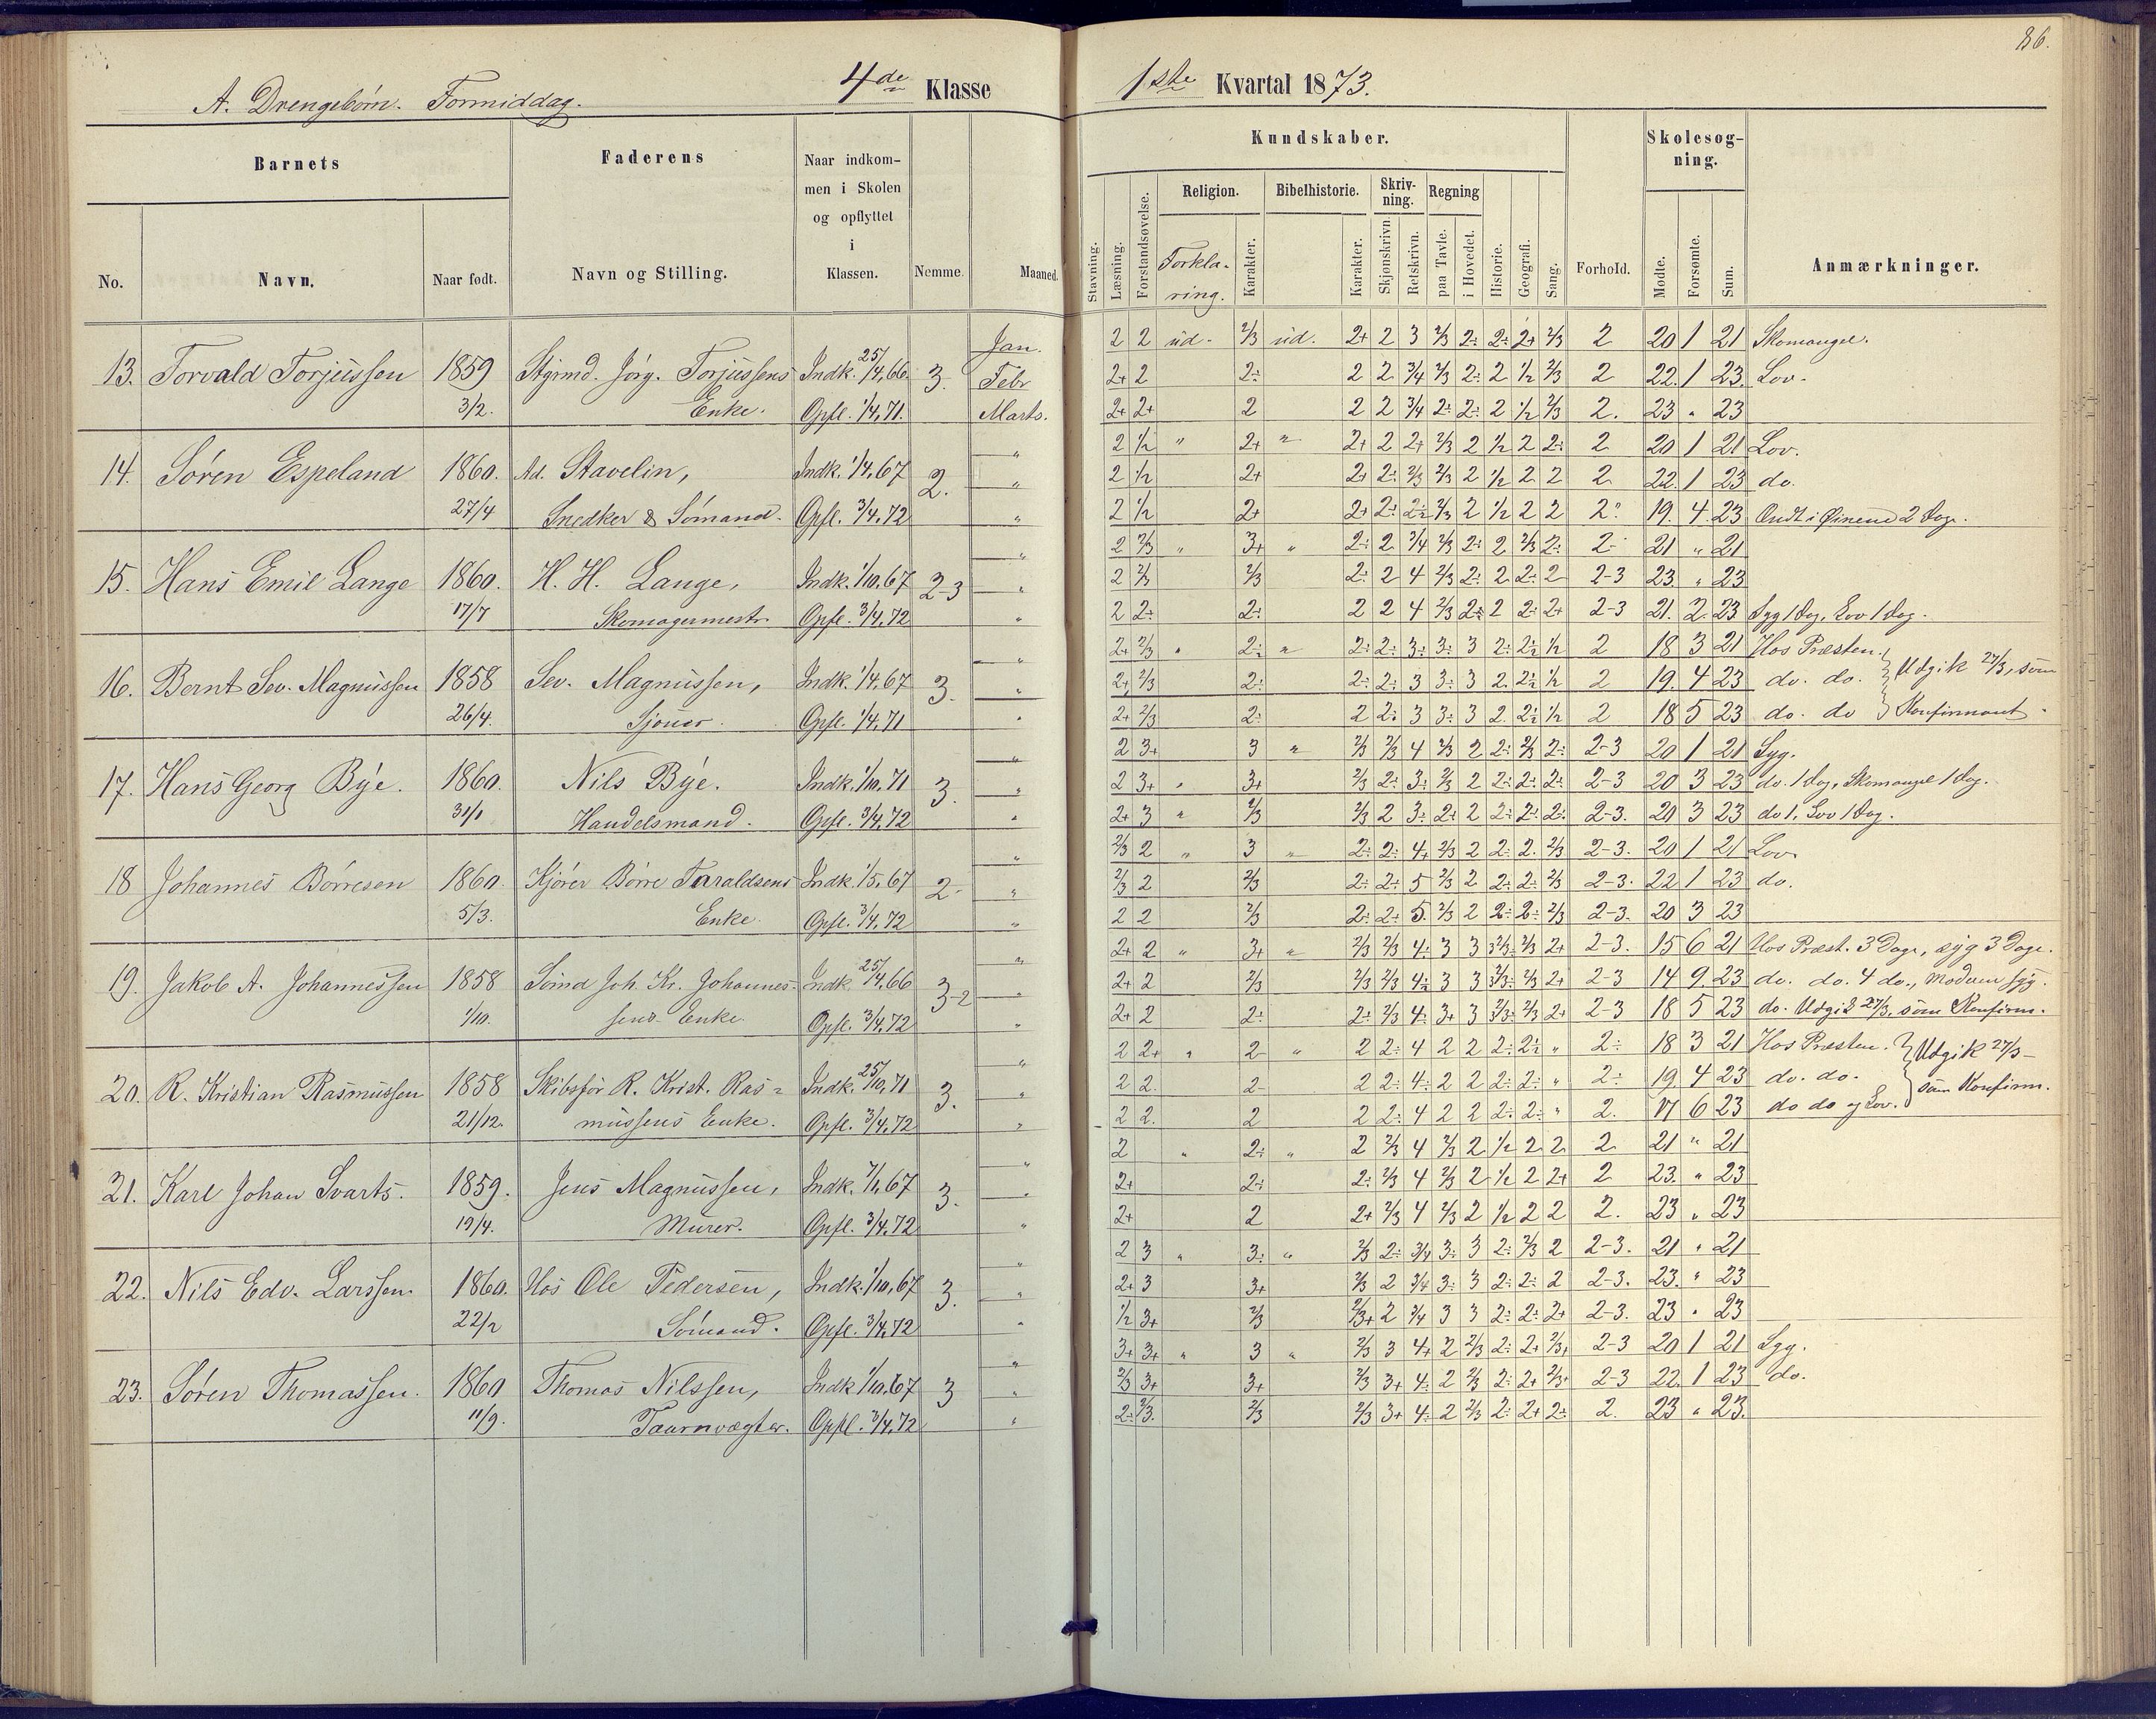 86.
A. Drengebørn. Formiddag. 4de Klasse 1ste Kvartal 1873.
Barnets Faderens Naar indkommen i Skolen og opflyttet i Klassen. Nemme. Maaned. Kundskaber. Skolesøgning. Anmærkninger.
No. Navn. Naar født. Navn og Stilling.
Stavning. Læsning. Forstandsøvelse. Religion. Forklaring. Karakter. Bibelhistorie. Karakter. Skrivning. Skjønskrivn. Retskrivn. Regning paa Tavle. i Hovedet. Historie. Geografi. Sang. Forhold. Mødte. Forsømte. Sum.
13. Torvald Torjussen 1859 3/2. Stgrmd. Jørg. Torjussens Enke. Indk. 25/4,66. Opfl. 1/4,71. 3.
Jan. 2 2 ud. 2/3 ud. 2+ 2 3 2/3 2÷ 2÷ 2+ 2/3 2 20 1 21 Skomangel.
Febr 2+ 2 2÷ 2 2 3/4 2/3 2÷ 2 1/2 2/3 2 22. 1 23. Lov.
Marts. 2+ 2+ 2 2 2 3/4 2÷ 2÷ 2 1/2 2/3 2. 23 " 23
14. Søren Espeland 1860. 27/4 Ad. Stavelin, Snedker & Sømand. Indk. 1/4,67 Opfl. 3/4,72 2.
" 2 1/2 " 2+ " 2+ 2 2+ 2/3 2 1/2 2 2÷ 2 20 1 21 Lov.
" 2 1/2 2+ 2+ 2÷ 2/3 2/3 2 1/2 2 2 2 22. 1 23 do.
" 2 1/2 2+ 2+ 2÷ 2÷ 2/3 2 1/2 2 2 2 19. 4. 23 Ondt i Øinene 2 Dage.
15. Hans Emil Lange 1860. 17/7 H. H. Lange, Skomagermestr. Indk. 1/10,67 Opfl. 3/4,72 2-3
" 2 2/3 " 3+ " 2÷ 2 3/4 2/3 2÷ 2 2/3 2÷ 2÷ 21 " 21
" 2 2/3 2/3 2÷ 2 4 2/3 2÷ 2 2÷ 2 2-3 23. " 23
" 2 2÷ 2÷ 2 2 4 2/3 2÷ 2 2÷ 2+ 2-3 21. 2. 23 Syg 1 Dag, Lov 1 Dag.
16. Bernt Sev. Magnussen 1858 26/4. Sev. Magnussen, Sjouer. Indk. 1/4,67 Opfl. 1/4,71 3.
" 2+ 2/3 " 2÷ " 2÷ 2÷ 3÷ 3÷ 3 2÷ 2÷ 1/2 2 18 3 21 Hos Præsten. } Udgik 27/3, som
" 2+ 2/3 2÷ 2÷ 2÷ 3 3÷ 3 2. 2÷ 1/2 2 19. 4 23 do. do.
" 2+ 2/3 2÷ 2 2÷ 3 3÷ 3 2. 2÷ 1/2 2 18 5 23 do. do } Konfirmant.
17. Hans Georg Bye. 1860. 31/1 Nils Bye. Handelsmand. Indk. 1/10,71 Opfl. 3/4,72 3.
" 2 3+ 3 " 2/3 2/3 4 2/3 2 2÷ 2/3 2÷ 2-3 20 1 21 Syg.
" 2 3+ " 3+ 2/3 2÷ 3÷ 2/3 2 2÷ 2÷ 2÷ 2-3 20 3 23 do. 1 Dag, Skomangel 1 Dag.
" 2+ 3 " 2/3 2/3 2 3÷ 2÷ 2 2÷ 2÷ 2÷ 2-3. 20 3 23 do 1, Lov 1 Dag.
18 Johannes Børresen 1860. 5/3. Kjører Børre Taraldsens Enke. Indk. 1/5,67 Opfl. 3/4,72 2-
" 2/3 2 " 3 " 2÷ 2÷ 4+ 2/3 2 2÷ 2. 2/3 2-3. 20 1 21 Lov
" 2/3 2 2/3 2÷ 2÷ 5 2/3 2 2÷ 2÷ 2/3 2-3. 22 1 23 do.
" 2 2 2/3 2÷ 2÷ 5. 2/3 2 2÷ 2÷ 2/3 2-3. 20 3 23
19. Jakob A. Johannessen 1858 1/10. Sømd Joh. Kr. Johannessens Enke. Indk 25/4,66 Opfl. 3/4,72 3-2
" 2+ 2 " 3+ " 2/3 2/3 4÷ 3 3 2/3÷ 2/3 2+ 2-3. 15 6 21 Hos Præst. 3 Dage, syg 3 Dage.
" 2+ 2 2/3 2/3 2/3 4÷ 3 3 2/3÷ 2/3 2+ 2-3 14 9. 23 do. do. 4 do., Moderen syg.
" 2+ 2 2÷ 2÷ 2/3 4÷ 3+ 3 2/3÷ 2/3 2+ 2-3 18 5 23 do. Udgik 27/3, som Konfirm.
20. R. Kristian Rasmussen 1858 21/12. Skibsfør R. Krist. Rasmussens Enke. Indk. 25/10,71 Opfl. 3/4,72 3.
" 2 2+ " 2 " 2 2÷ 4 2 2 2÷ 2÷ " 2÷ 18 3 21 Hos Præsten. } Udgik 27/3
" 2 2. 2 2 2÷ 4÷ 2 2 2÷ 2÷ " 2÷ 19 4 23 do. do. som Konfirm.
" 2 2. 2 2 2÷ 4 2 2 2÷ 2÷ " 2. 17 6 23 do do og Lov.
21. Karl Johan Svarts. 1859. 19/4. Jens Magnussen, Murer. Indk. 7/1,67 Opfl. 3/4,72 3.
" 2 " 2÷ " 2 2/3 4 2/3 2 1/2 2 2 2 21 " 21
" 2+ 2÷ 2÷ 2/3 4 2/3 2 1/2 2 2+ 2 23. " 23
" 2+ 2 2+ 2/3 4 2/3 2 1/2 2 2 2. 23 " 23
22. Nils Edv. Larssen. 1860. 22/2 Hos Ole Pedersen, Sømand. Indk. 1/10,67 Opfl. 3/4,72 3.
" 2 3 " 3÷ " 2/3 2÷ 3/4 3÷ 3 2÷ 2/3 2 2-3. 21 " 21
" 2+ 3 3+ 2/3 2 3/4 3÷ 3 2÷ 2÷ 2 2-3. 23. " 23
" 1/2 3+ 2/3 2/3+ 2 3/4 3 3 2÷ 2÷ 2+ 2-3. 23 " 23
23. Søren Thomassen. 1860 11/9. Thomas Nilssen, Taarnvægter. Indk 1/10,67 Opfl. 3/4,72 3
" 3+ 3+ " 3 " 2/3 3 4+ 2 2/3 2÷ 2+ 2/3+ 2-3 20 1 21 Syg.
" 2/3 3+ 3+ 2/3 3+ 4÷ 2 2/3 2÷ 2+ 2/3+ 2-3 22. 1 23 do.
" 2÷ 2/3. 2/3 2/3 3+ 4÷ 2 2/3 2÷ 2+ 2÷ 2. 23 " 23.